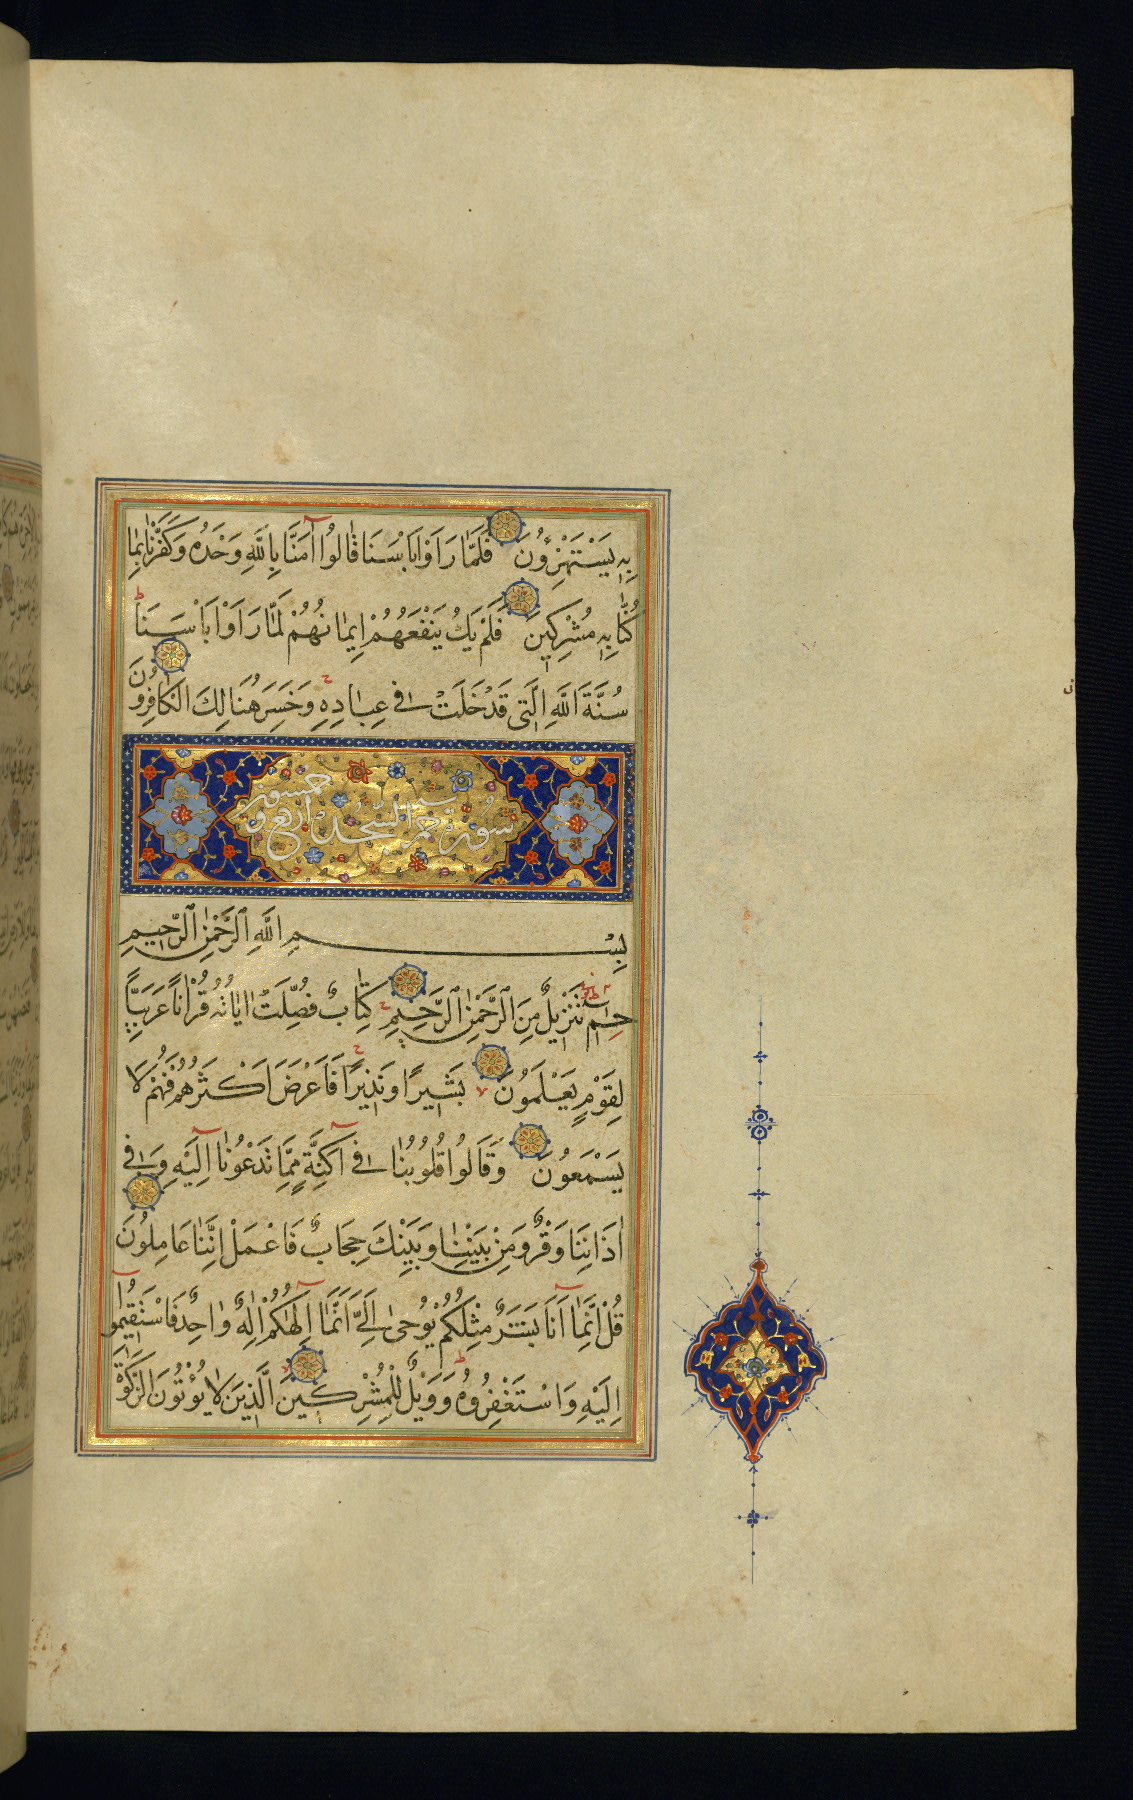 بِهِ يَسْتَهْزِؤُنَ فَلَمَّا رَاَوْا بَاْسَنَا قَالُوا اٰمَنَّا بِاللّٰهِ وَحْدَهُ وَكَفَرْنَا بِمَا
كُنَّا بِهِ مُشْرِكِينَ فَلَمْ يَكُ يَنْفَعُهُمْ اِيمَانُهُمْ لَمَّا رَاَوْا بَاْسَنَا
سُنَّةَ اللّٰهِ الَّتِى قَدْ خَلَتْ فِى عِبَادِهِ وَخَسِرَ هُنَالِكَ الْكَافِرُونَ
سورة حم السجدة اربع و خمسون
بِسْمِ اللّٰهِ الرَّحْمٰنِ الرَّحِيمِ
حٰم تَنْزِيلٌ مِنَ الرَّحْمٰنِ الرَّحِيمِ كِتَابٌ فُصِّلَتْ اٰيَاتُهُ قُرْاٰنًا عَرَبِيًّا
لِقَوْمٍ يَعْلَمُونَ بَشِيرًا وَنَذِيرًا فَاَعْرَضَ اَكْثَرُهُمْ فَهُمْ لَا
يَسْمَعُونَ وَقَالُوا قُلُوبُنَا فِى اَكِنَّةٍ مِمَّا تَدْعُونَا اِلَيْهِ وَفِى
اٰذَانِنَا وَقْرٌ وَمِنْ بَيْنِنَا وَبَيْنِكَ حِجَابٌ فَاعْمَلْ اِنَّنَا عَامِلُونَ
قُلْ اِنَّمَا اَنَا بَشَرٌ مِثْلُكُمْ يُوحٰى اِلَىَّ اَنَّمَا اِلٰهُكُمْ اِلٰهٌ وَاحِدٌ فَاسْتَقِيمُوا
اِلَيْهِ وَاسْتَغْفِرُوهُ وَوَيْلٌ لِلْمُشْرِكِينَ الَّذِينَ لَا يُؤْتُونَ الزَّكٰوةَ